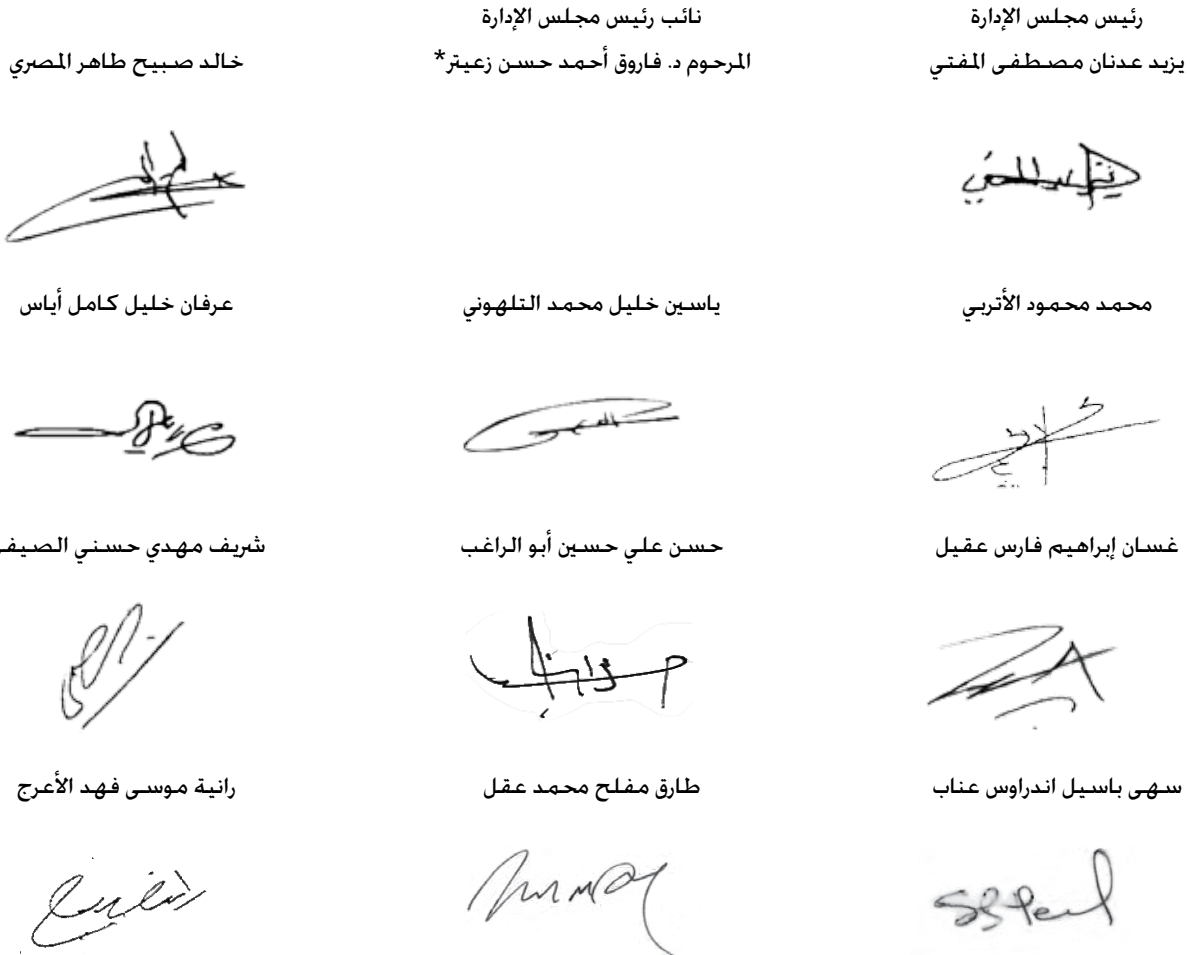 رئيس مجلس الإدارة
نائب رئيس مجلس الإدارة
يزيد عدنان مصطفى المفتي
المرحوم د. فاروق أحمد حسن زعيتر*
خالد صبيح طاهر المصري
محمد محمود الأتربي
ياسين خليل محمد التلهوني
عرفان خليل كامل أياس
غسان إبراهيم فارس عقيل
حسن علي حسين أبو الراغب
شريف مهدي حسني الصيفي
سهى باسيل اندراوس عناب
طارق مفلح محمد عقل
رانية موسى فهد الأعرج